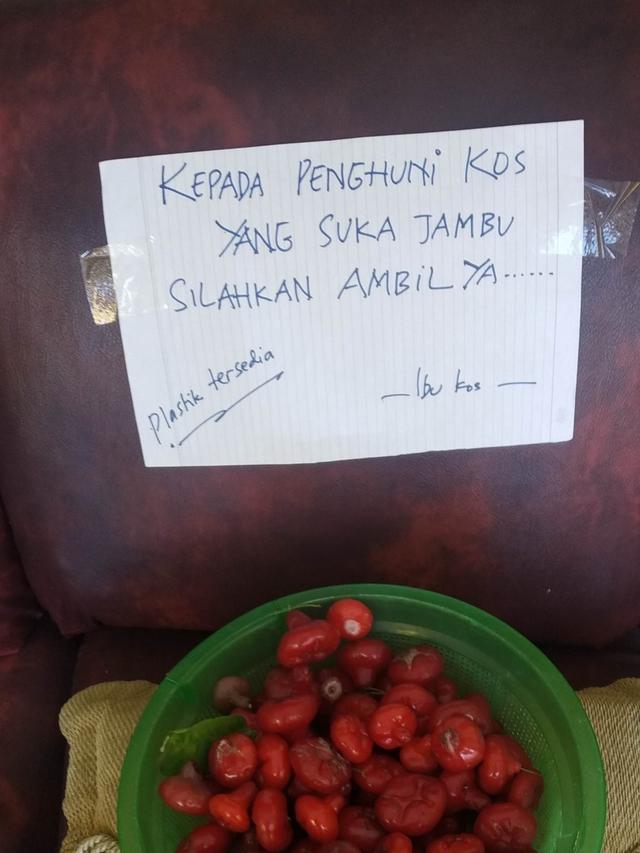 KEPADA PENGHUNI KOS
YANG SUKA JAMBU
SILAHKAN AMBIL YA......
Plastik tersedia
— Ibu kos —